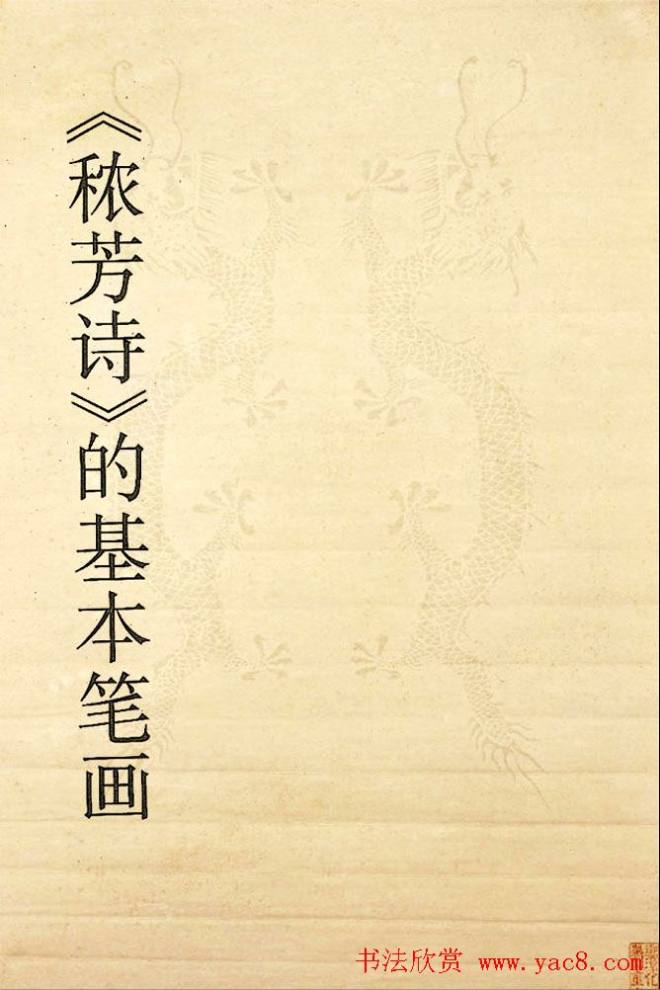 《秾芳诗》的基本笔画
书法欣赏 www.yac8.com